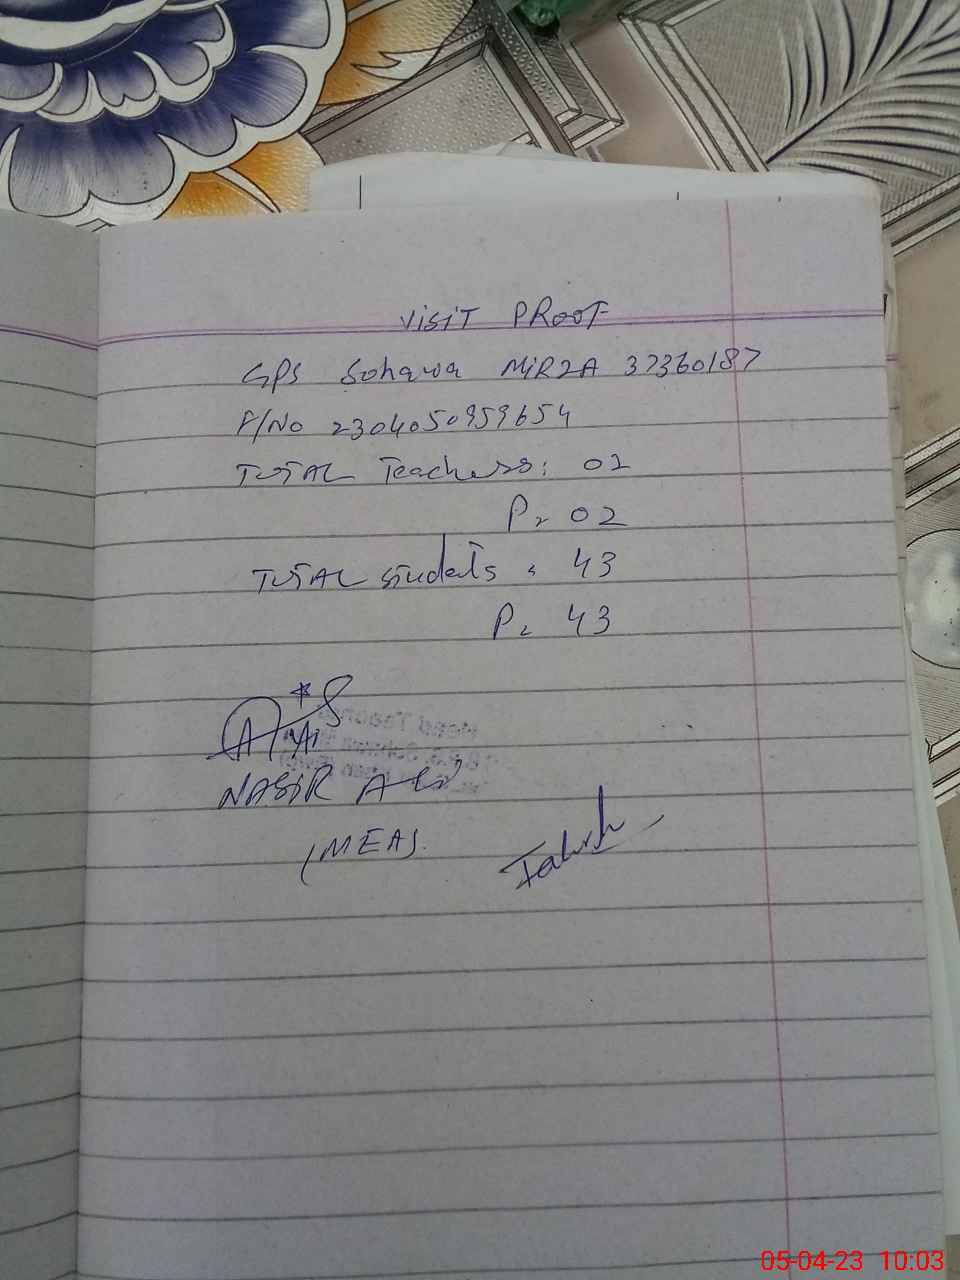 VISIT PROOF
GPS Sohawa MIRZA 37360187
F/No 2304050959654
TOTAL Teachers: 02
P= 02
TOTAL students = 43
P= 43
NASIR Ali
(MEA)
Head Teacher
05-04-23 10:03